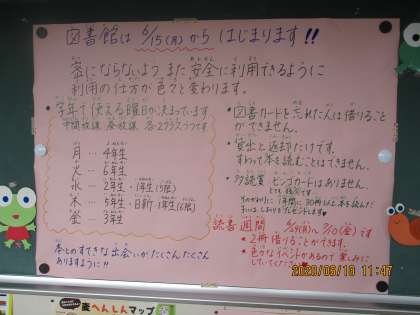 図書館は 6/15(月)から はじまります!!
密にならないよう また 安全に利用できるように
利用の仕方が 色々と変わります。
学年で使える曜日が決まっています
月…4年生
火…6年生
水…2年生・1年生(5限)
木…5年生・日新・1年生(6限)
金…3年生
本とのすてきな出会いが たくさんたくさん
ありますように!!
・図書カードを忘れた人は借りること
ができません。
・貸出と返却だけです。
すわって本を読むことはできません。
・多読賞 ビンゴカードはありません。
読書週間
です
・2冊借りることができます。
・色々なイベントがあるので楽しみに
していてください
2020/06/16 11:47